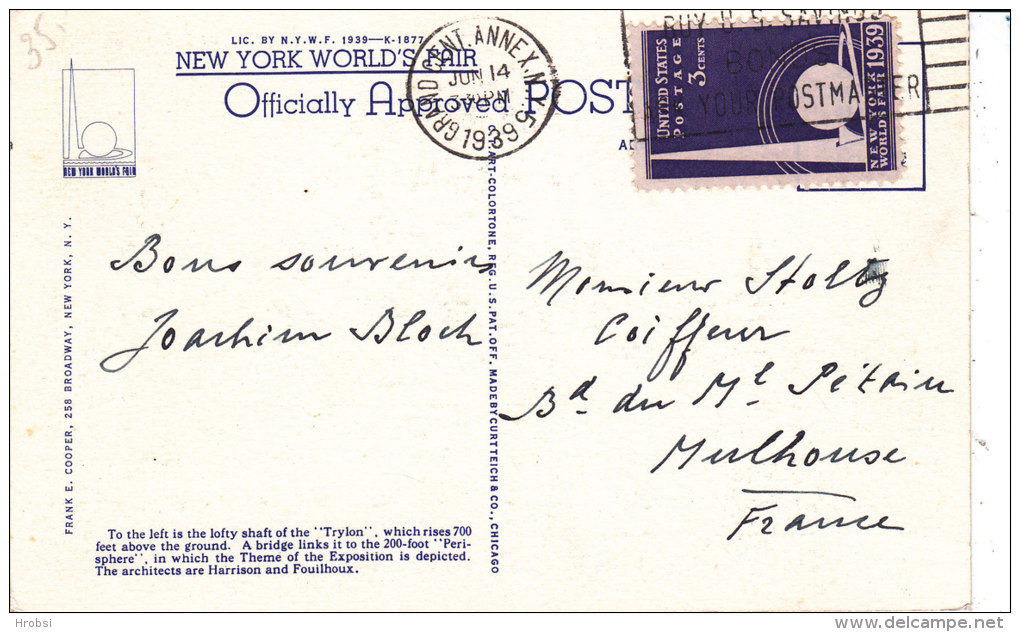 35.
LIC. BY N.Y.W.F. 1939—K-1877
NEW YORK WORLD'S FAIR
Officially Approved POST
GRAND CENT. ANNEX. N.Y.
JUN 14
PM
1939
5
BUY U S SAVINGS
YOUR POSTMASTER
UNITED STATES
POSTAGE
3 CENTS
NEW YORK
WORLD'S FAIR 1939
NEW YORK WORLD'S FAIR
FRANK E. COOPER, 258 BROADWAY, NEW YORK, N. Y.
ART-COLORTONE, REG. U.S. PAT. OFF. MADE BY CURT TEICH & CO., CHICAGO
Bons souvenirs
Joachim Bloch
Monsieur Stoltz
Coiffeur
Bd. du Ml Pétain
Mulhouse
France
To the left is the lofty shaft of the "Trylon", which rises 700
feet above the ground. A bridge links it to the 200-foot "Peri-
sphere", in which the Theme of the Exposition is depicted.
The architects are Harrison and Fouilhoux.
Hrobsi
delcampe.net